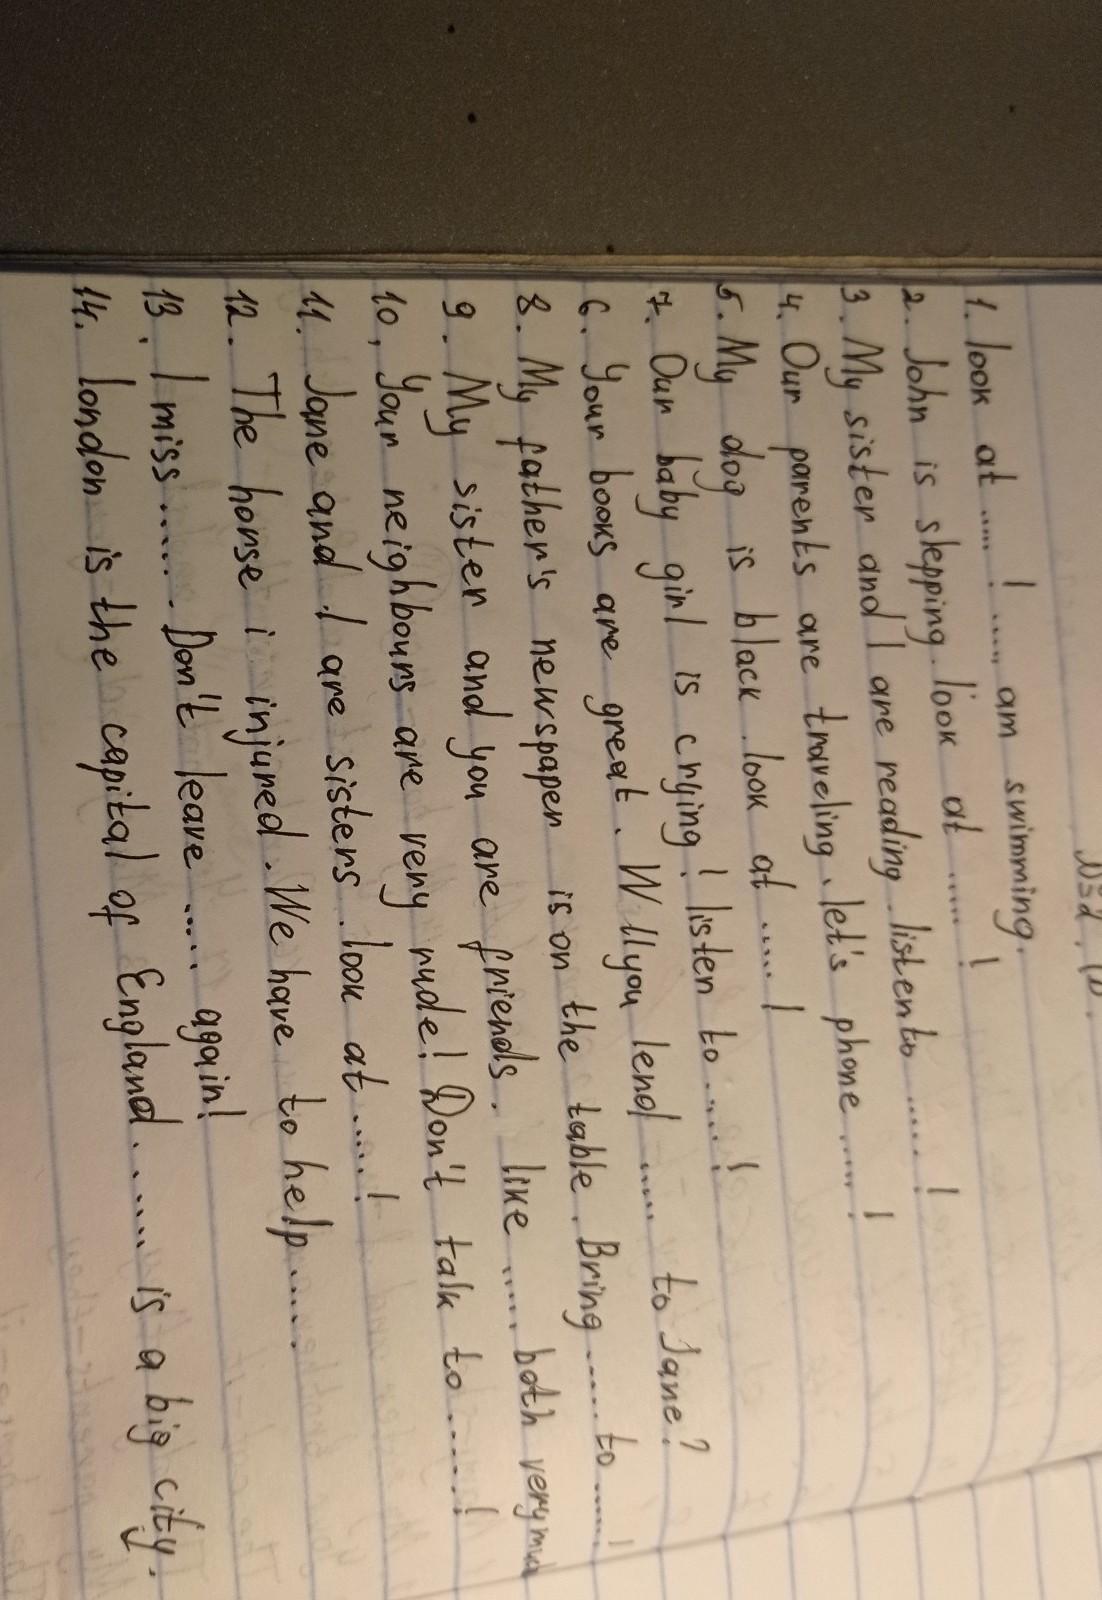 1. look at ..... ! ..... am swimming.
2. John is slepping. look at ..... !
3. My sister and I are reading. listen to ..... !
4. Our parents are traveling. let's phone ..... !
5. My dog is black. look at ..... !
7. Our baby girl is crying! listen to ..... !
6. Your books are great. Will you lend ..... to Jane?
8. My father's newspaper is on the table. Bring ..... to ..... !
9. My sister and you are friends. like ..... both very
10, Your neighbours are very rude! Don't talk to ..... !
11. Jane and I are sisters. look at ..... !
12. The horse i injured. We have to help ..... .
13. I miss ..... . Don't leave ..... again!
14. london is the capital of England. ..... is a big city.